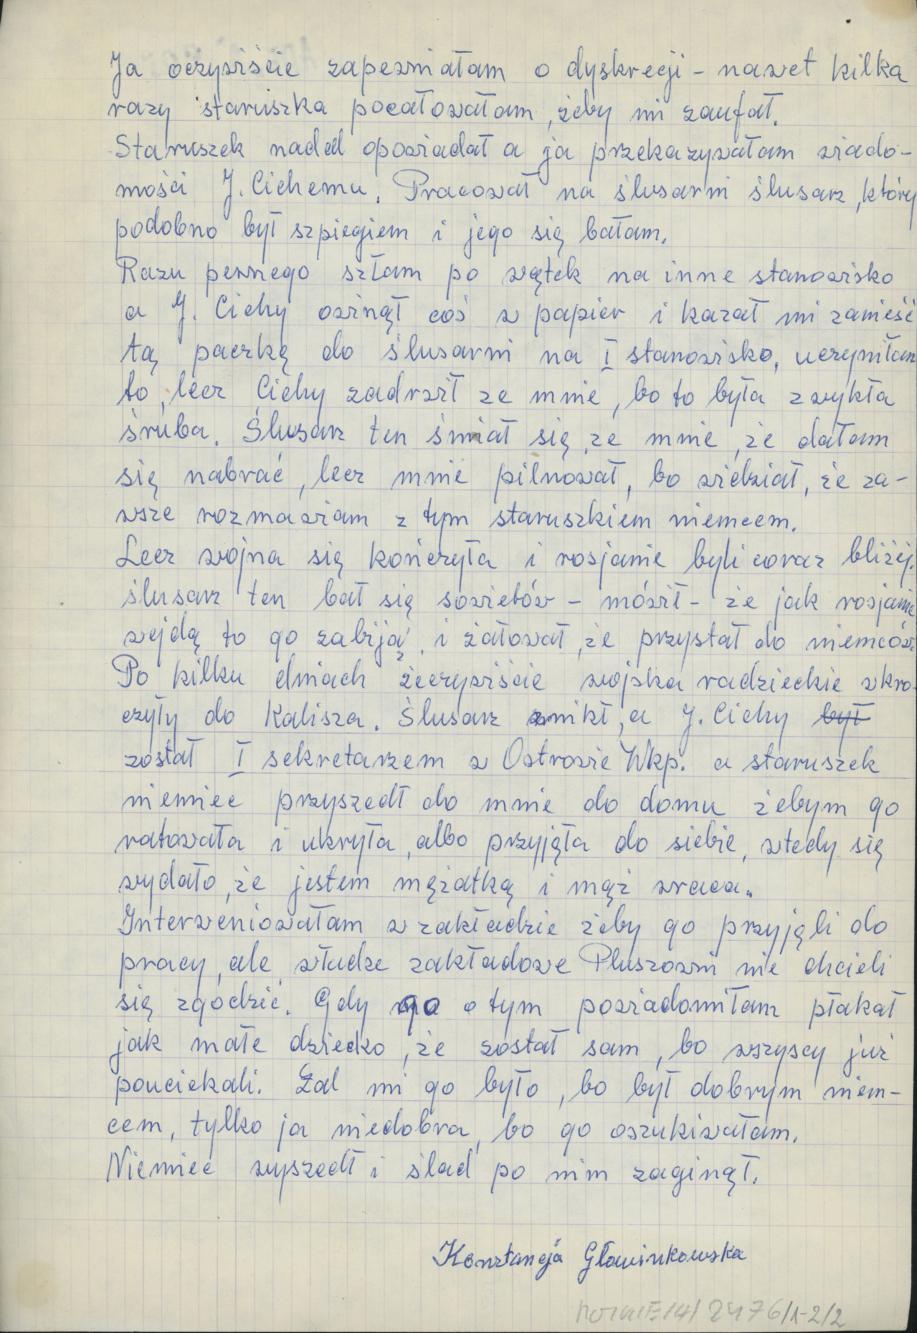 Ja oczywiście zapewniałam o dyskrecji – nawet kilka
razy staruszka pocałowałam, żeby mi zaufał.
Staruszek nadal opowiadał a ja przekazywałam wiado-
mości J. Cichemu. Pracował na ślusarni ślusarz, który
podobno był szpiegiem i jego się bałam.
Razu pewnego szłam po wątek na inne stanowisko
a J. Cichy owinął coś w papier i kazał mi zanieść
tą paczkę do ślusarni na I stanowisko, uczyniłam
to, lecz Cichy zadrwił ze mnie, bo to była zwykła
śruba. Ślusarz ten śmiał się ze mnie, że dałam
się nabrać, lecz mnie pilnował, bo widział, że za-
wsze rozmawiam z tym staruszkiem niemcem.
Lecz wojna się kończyła i rosjanie byli coraz bliżej.
ślusarz ten bał się sowietów – mówił – że jak rosjanie
wejdą to go zabiją, i żałował, że przystał do niemców.
Po kilku dniach rzeczywiście wojska radzieckie wkro-
czyły do Kalisza. Ślusarz znikł, a J. Cichy był
został I sekretarzem w Ostrowie Wkp. a staruszek
niemiec przyszedł do mnie do domu żebym go
ratowała i ukryła, albo przyjęła do siebie, wtedy się
wydało, że jestem mężatką i mąż wraca.
Interweniowałam w zakładzie żeby go przyjęli do
pracy, ale władze zakładowe Pluszowni nie chcieli
się zgodzić. Gdy go o tym powiadomiłam płakał
jak małe dziecko, że został sam, bo wszyscy już
pouciekali. Żal mi go było, bo był dobrym niem-
cem, tylko ja niedobra, bo go oszukiwałam.
Niemiec wyszedł i ślad po nim zaginął.
Konstancja Głowinkowska
2476/1-2/2